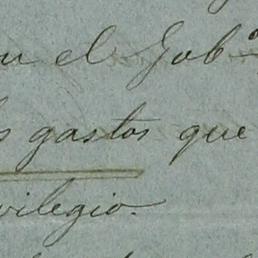 el Gob.º
gastos que
vilegio.